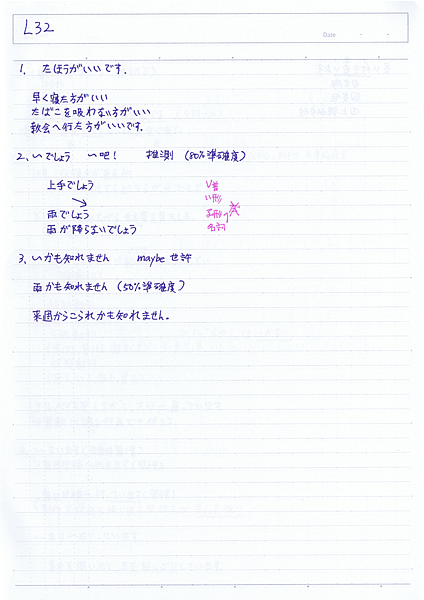 L32
Date
1. たほうがいいです.
早く寝た方がいい
たばこを吸わない方がいい
教会へ行た方がいいです.
2. ~でしょう ~吧! 推測 (80%準確度)
上手でしょう V普
い形
雨でしょう な形
雨が降らないでしょう 名詞
3. ~かも知れません maybe 也許
雨かも知れません (50%準確度)
来週からこられかも知れません.